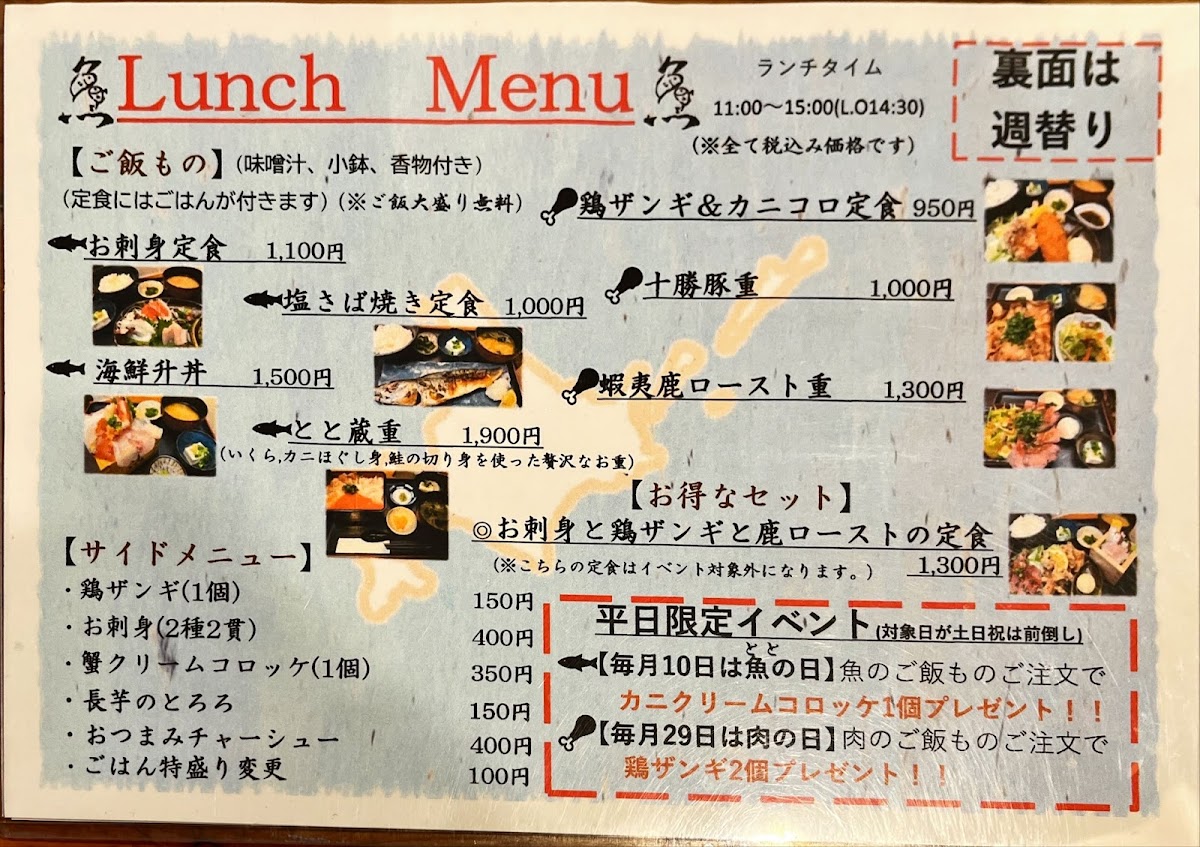 魚 Lunch Menu 魚
ランチタイム
11:00～15:00(L.O14:30)
(※全て税込み価格です)
裏面は
週替り
【ご飯もの】(味噌汁、小鉢、香物付き)
(定食にはごはんが付きます)(※ご飯大盛り無料)
お刺身定食 1,100円
塩さば焼き定食 1,000円
海鮮升丼 1,500円
とと蔵重 1,900円
(いくら,カニほぐし身,鮭の切り身を使った贅沢なお重)
鶏ザンギ＆カニコロ定食 950円
十勝豚重 1,000円
蝦夷鹿ロースト重 1,300円
【お得なセット】
◎お刺身と鶏ザンギと鹿ローストの定食
(※こちらの定食はイベント対象外になります。) 1,300円
【サイドメニュー】
・鶏ザンギ(1個) 150円
・お刺身(2種2貫) 400円
・蟹クリームコロッケ(1個) 350円
・長芋のとろろ 150円
・おつまみチャーシュー 400円
・ごはん特盛り変更 100円
平日限定イベント(対象日が土日祝は前倒し)
とと
【毎月10日は魚の日】魚のご飯ものご注文で
カニクリームコロッケ1個プレゼント！！
【毎月29日は肉の日】肉のご飯ものご注文で
鶏ザンギ2個プレゼント！！